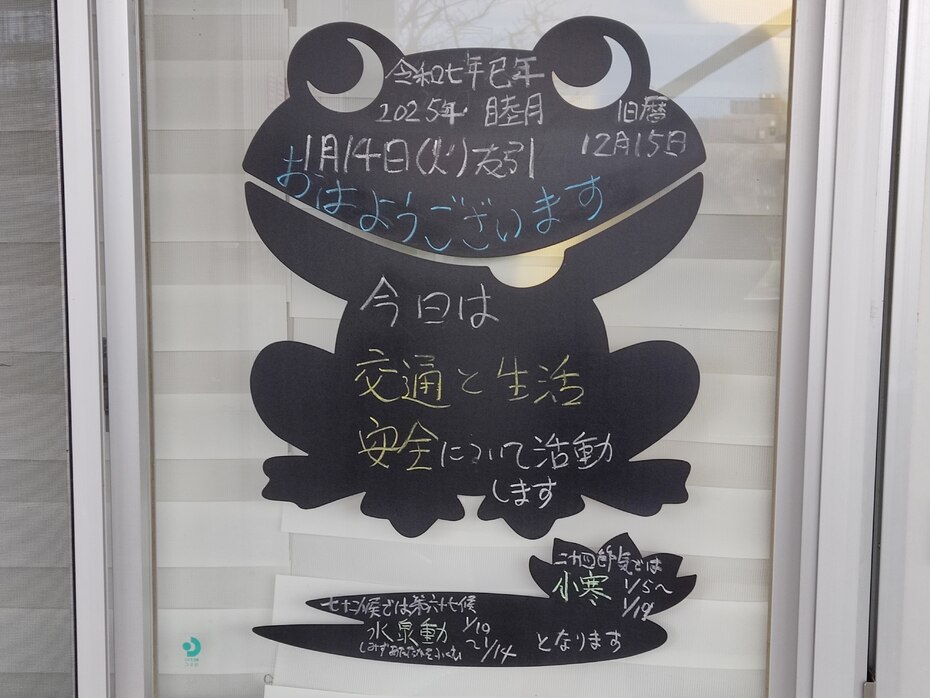 令和七年巳年
2025年 睦月
旧暦
12月15日
1月14日(火)友引
おはようございます
今日は
交通と生活
安全について活動
します
二十四節気では
小寒 1/5〜
1/19
七十二候では第六十七候
水泉動 1/10
〜1/14
しみずあたたかをふくむ
となります